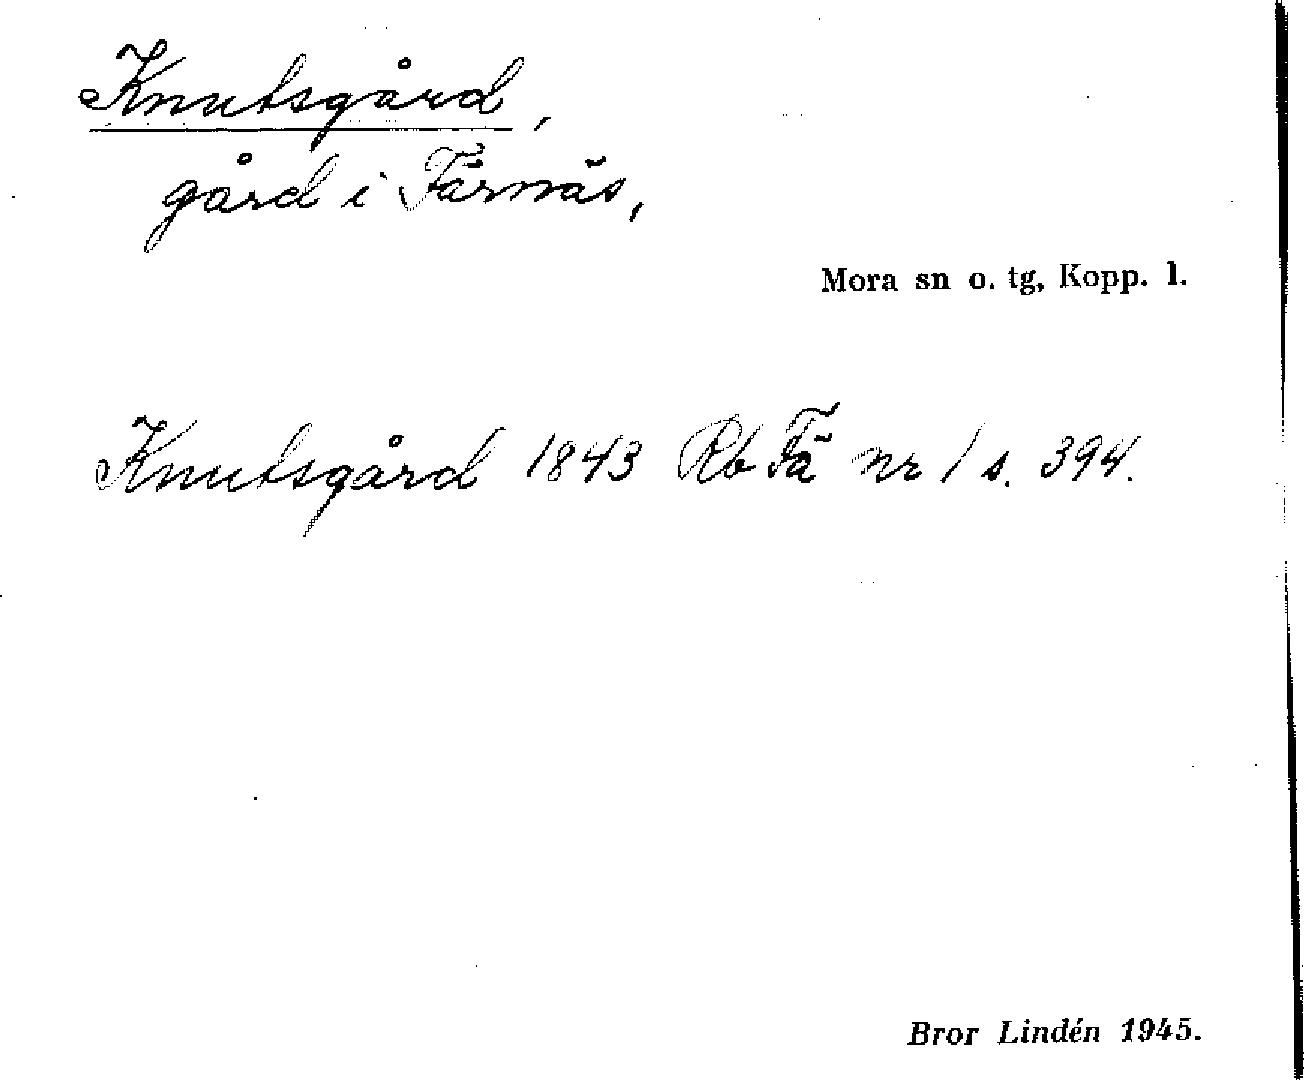 Knutsgård,
gård i Färnäs,
Mora sn o. tg, Kopp. l.
Knutsgård 1843 Rb Fä nr 1 s. 394.
Bror Lindén 1945.